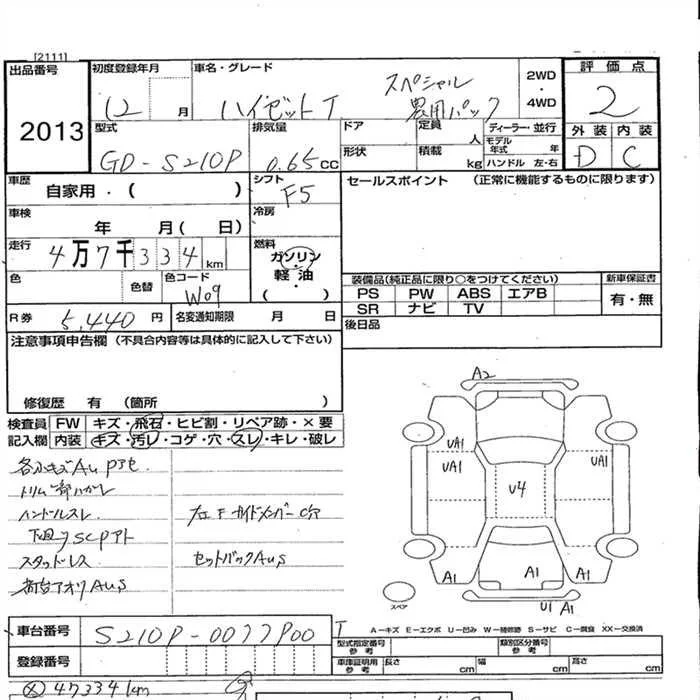 [2111]
出品番号
2013
初度登録年月
12 月
車名・グレード
ハイゼットT
スペシャル
農用パック
2WD
・
4WD
評価点
2
外装 内装
D C
型式
GD-S210P
排気量
0.65cc
ドア
形状
定員
人
積載
kg
ディーラー・並行
モデル年式 年
ハンドル 左・右
車歴
自家用・( )
シフト
F5
セールスポイント (正常に機能するものに限ります)
車検
年 月( 日)
冷房
走行
4万7千334km
燃料
ガソリン
・
軽油
・
( )
色
色替
色コード
W09
装備品(純正品に限り○をつけてください)
PS PW ABS エアB
SR ナビ TV
新車保証書
有・無
R券 5,440 円
名変通知期限 月 日
後日品
注意事項申告欄 (不具合内容等は具体的に記入して下さい)
修復歴 有 (箇所 )
検査員記入欄
FW キズ・飛石・ヒビ割・リペア跡・×要
内装 キズ・汚レ・コゲ・穴・スレ・キレ・破レ
トリム一部ハガレ
ハンドルスレ
左右Fサイドメンバー C穴
下廻りSCPアト
スタッドレス
セットバックAuS
荷台アオリAuS
A2
UA1
UA1
UA1
UA1
U4
A1
A1
A1
U1 A1
スペア
A-キズ E-エクボ U-凹み W-補修跡 S-サビ C-腐食 XX-交換済
車台番号
S210P-0077P00
登録番号
型式指定番号
参考
類別区分番号
参考
車庫証明用
参考
長さ cm
幅 cm
高さ cm
47334km